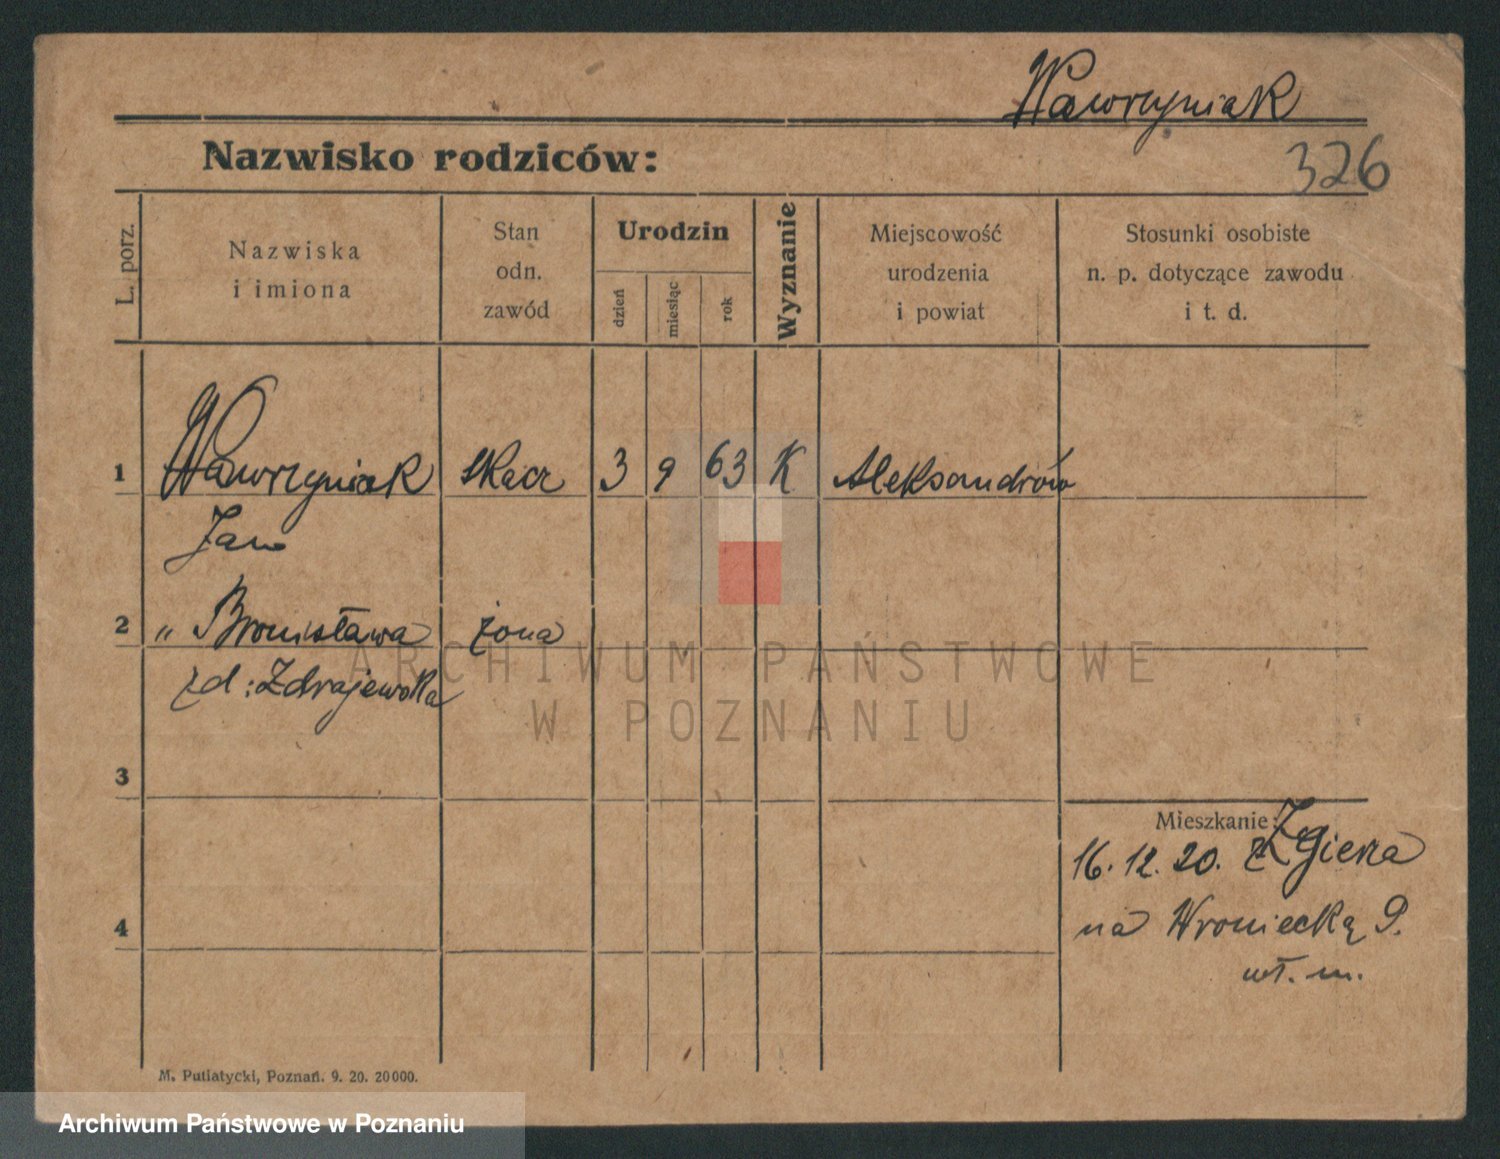 Wawrzyniak
Nazwisko rodziców:
326
L. porz.
Nazwiska
i imiona
Stan
odn.
zawód
Urodzin
dzień
miesiąc
rok
Wyznanie
Miejscowość
urodzenia
i powiat
Stosunki osobiste
n. p. dotyczące zawodu
i t. d.
1 Wawrzyniak tkacz 3 9 63 K Aleksandrów
Jan
2 " Bronisława żona
zd: Zdrajewska
3
Mieszkanie:
16. 12. 20. z Zgierza
na Wroniecką 9.
wł. m.
4
M. Putiatycki, Poznań. 9. 20. 20000.
ARCHIWUM PAŃSTWOWE
W POZNANIU
Archiwum Państwowe w Poznaniu